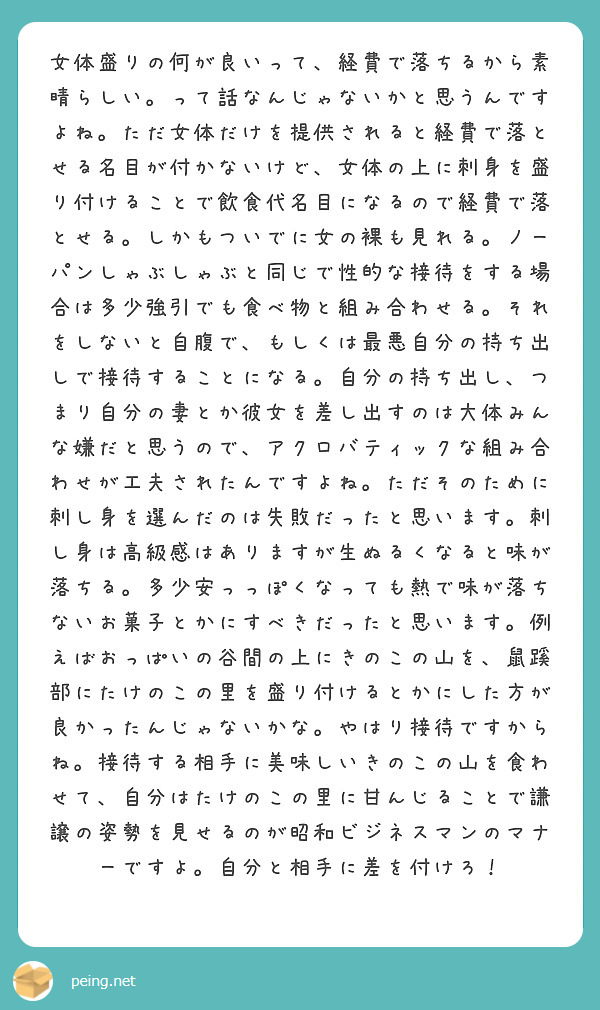 女体盛りの何が良いって、経費で落ちるから素
晴らしい。って話なんじゃないかと思うんです
よね。ただ女体だけを提供されると経費で落と
せる名目が付かないけど、女体の上に刺身を盛
り付けることで飲食代名目になるので経費で落
とせる。しかもついでに女の裸も見れる。ノー
パンしゃぶしゃぶと同じで性的な接待をする場
合は多少強引でも食べ物と組み合わせる。それ
をしないと自腹で、もしくは最悪自分の持ち出
しで接待することになる。自分の持ち出し、つ
まり自分の妻とか彼女を差し出すのは大体みん
な嫌だと思うので、アクロバティックな組み合
わせが工夫されたんですよね。ただそのために
刺し身を選んだのは失敗だったと思います。刺
し身は高級感はありますが生ぬるくなると味が
落ちる。多少安っっぽくなっても熱で味が落ち
ないお菓子とかにすべきだったと思います。例
えばおっぱいの谷間の上にきのこの山を、鼠蹊
部にたけのこの里を盛り付けるとかにした方が
良かったんじゃないかな。やはり接待ですから
ね。接待する相手に美味しいきのこの山を食わ
せて、自分はたけのこの里に甘んじることで謙
譲の姿勢を見せるのが昭和ビジネスマンのマナ
ーですよ。自分と相手に差を付けろ!
peing.net